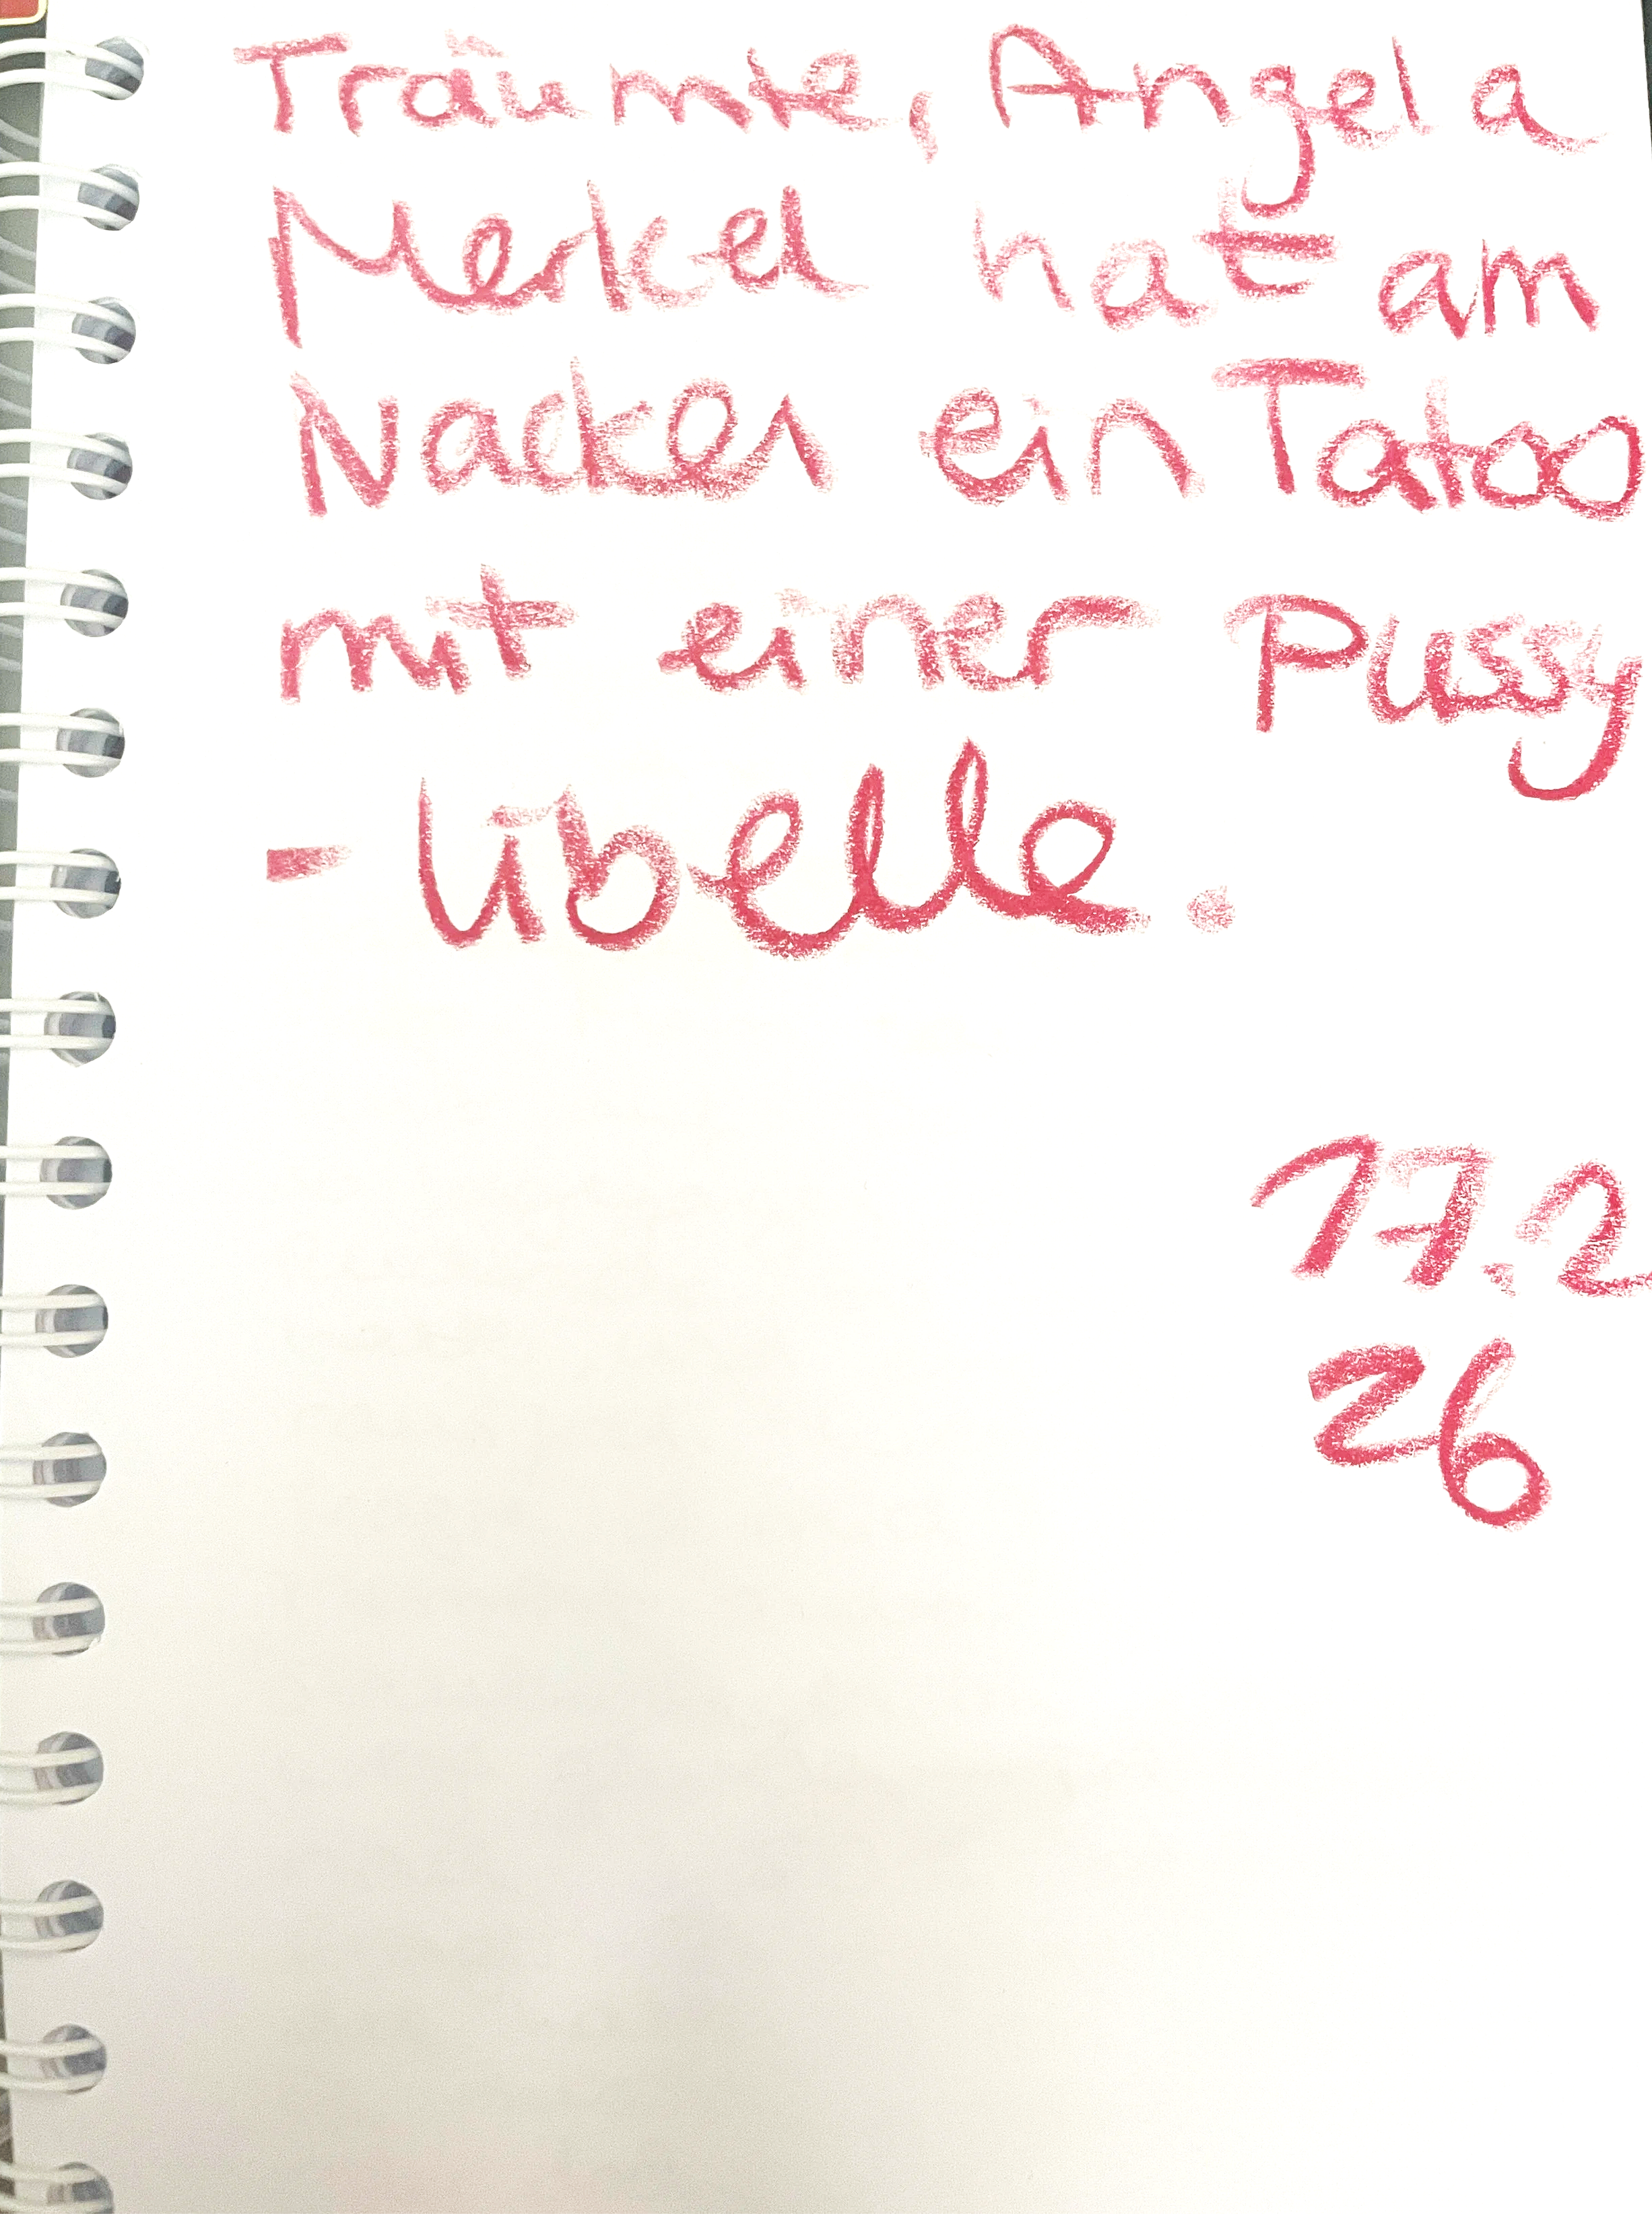 Träumte, Angela
Merkel hat am
Nacken ein Tatoo
mit einer Pussy
- Libelle.
17.2
26